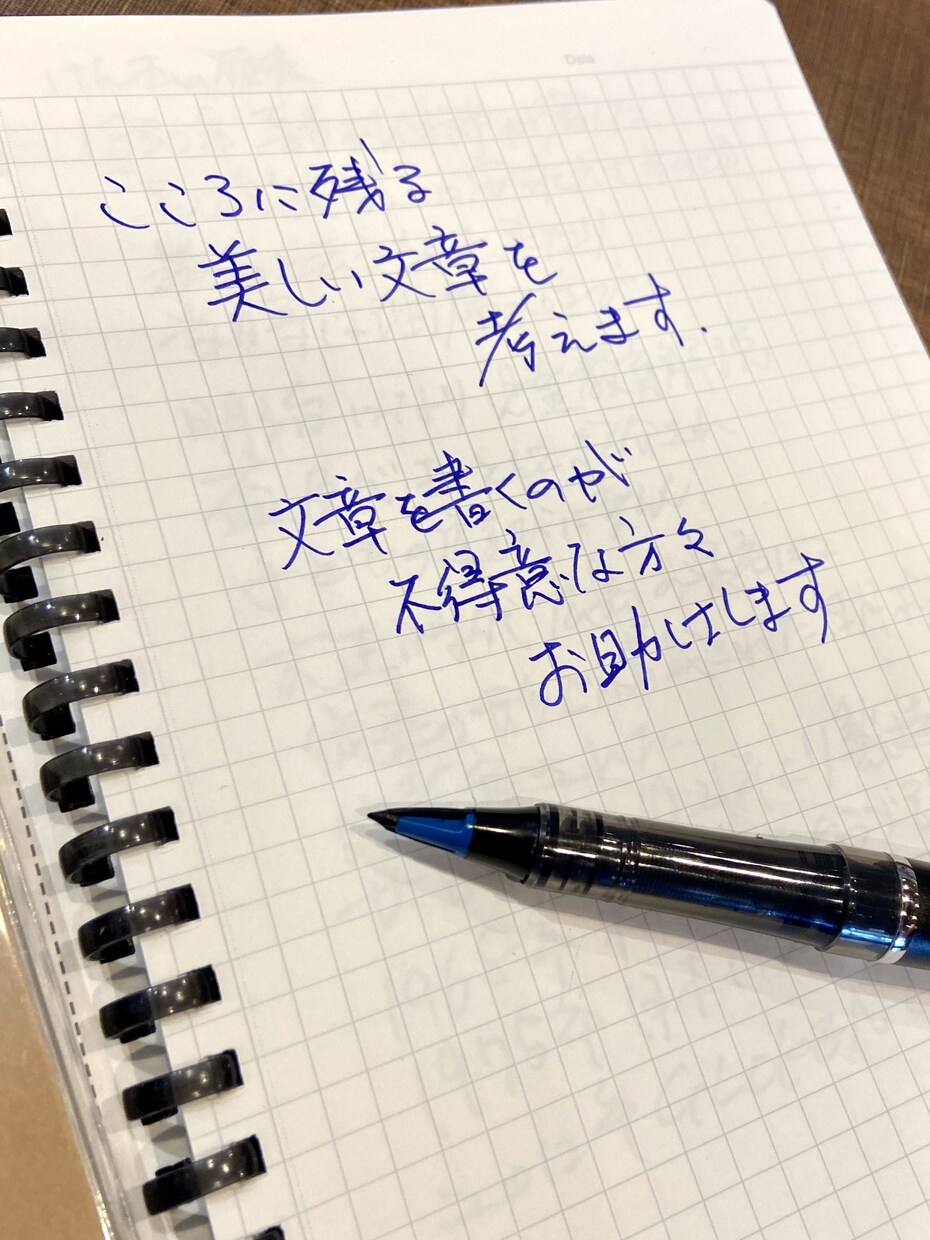 Date
こころに残る
美しい文章を
考えます.
文章を書くのが
不得意な方々
お助けします